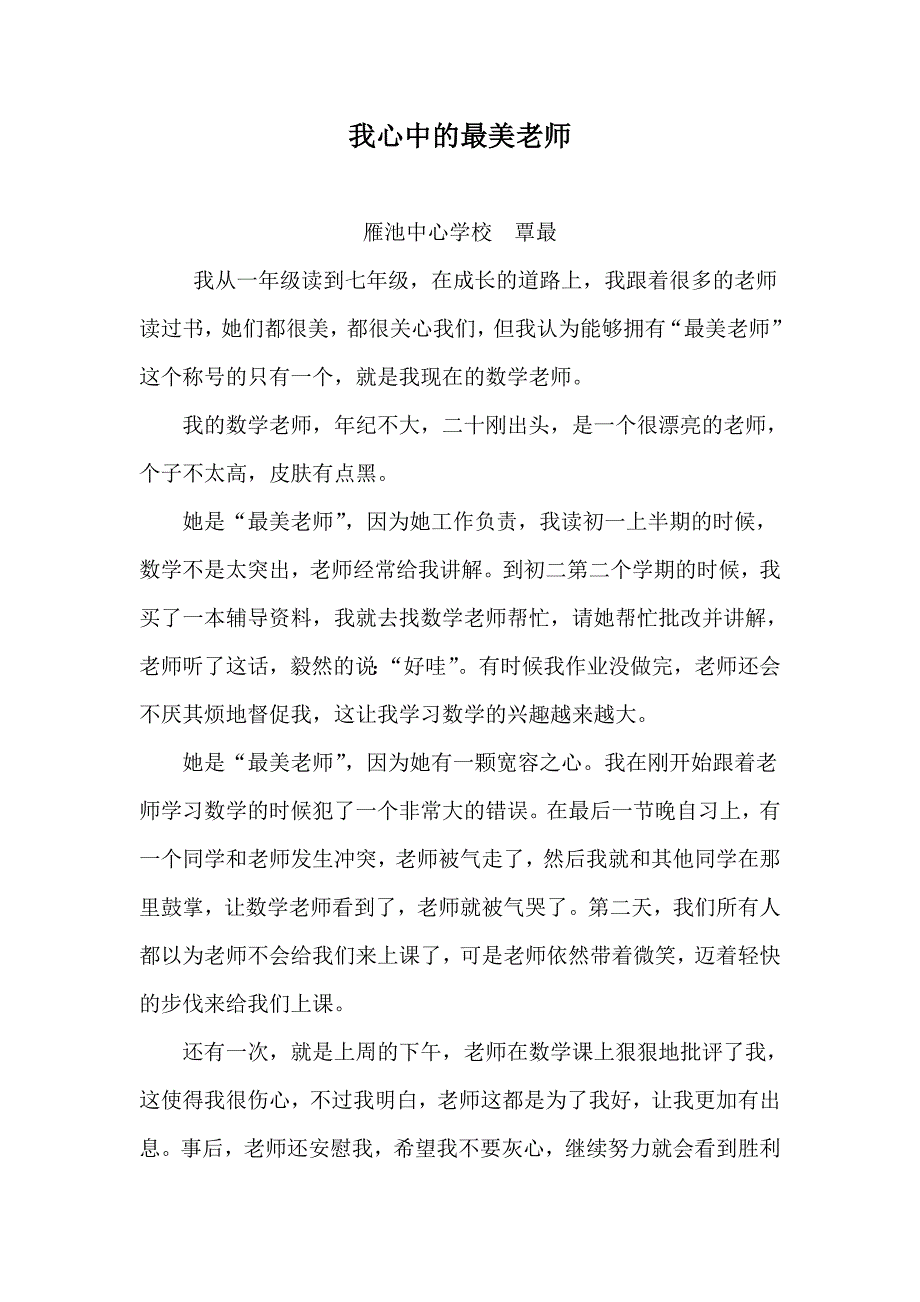 我心中的最美老师
雁池中心学校 覃最
我从一年级读到七年级，在成长的道路上，我跟着很多的老师
读过书，她们都很美，都很关心我们，但我认为能够拥有“最美老师”
这个称号的只有一个，就是我现在的数学老师。
我的数学老师，年纪不大，二十刚出头，是一个很漂亮的老师，
个子不太高，皮肤有点黑。
她是“最美老师”，因为她工作负责，我读初一上半期的时候，
数学不是太突出，老师经常给我讲解。到初二第二个学期的时候，我
买了一本辅导资料，我就去找数学老师帮忙，请她帮忙批改并讲解，
老师听了这话，毅然的说：“好哇”。有时候我作业没做完，老师还会
不厌其烦地督促我，这让我学习数学的兴趣越来越大。
她是“最美老师”，因为她有一颗宽容之心。我在刚开始跟着老
师学习数学的时候犯了一个非常大的错误。在最后一节晚自习上，有
一个同学和老师发生冲突，老师被气走了，然后我就和其他同学在那
里鼓掌，让数学老师看到了，老师就被气哭了。第二天，我们所有人
都以为老师不会给我们来上课了，可是老师依然带着微笑，迈着轻快
的步伐来给我们上课。
还有一次，就是上周的下午，老师在数学课上狠狠地批评了我，
这使得我很伤心，不过我明白，老师这都是为了我好，让我更加有出
息。事后，老师还安慰我，希望我不要灰心，继续努力就会看到胜利